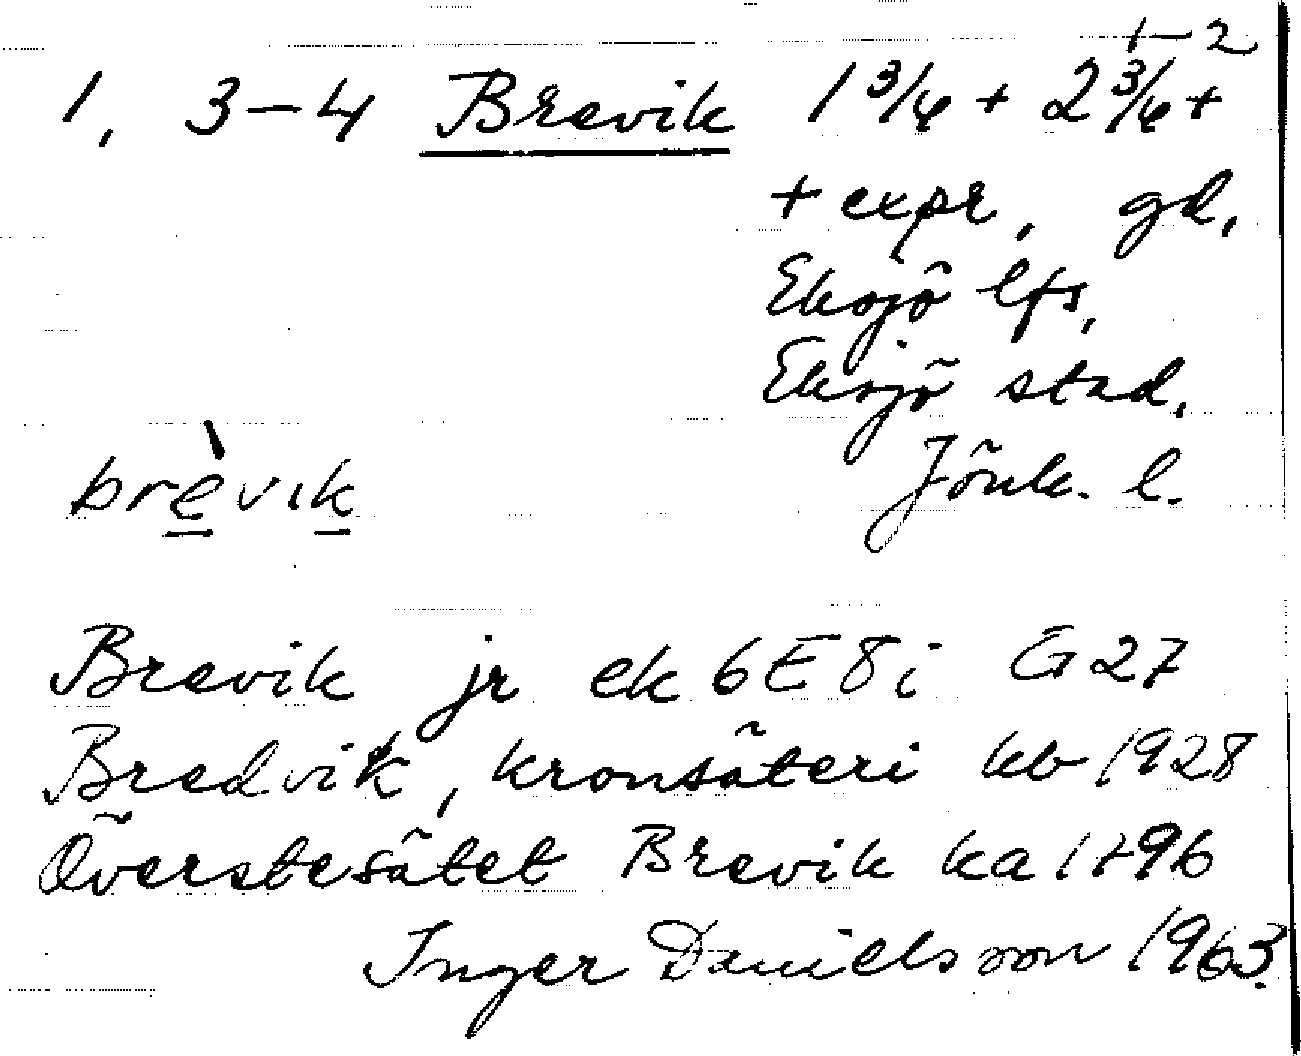 1-2
1, 3-4 Brevik 1 3/4 + 2 3/4 +
+ expr, gd,
Eksjö lfs,
Eksjö stad,
brèvik Jönk. l.
Brevik jr ek 6E8i G27
Bredvik, kronsäteri kb 1928
Överstesätet Brevik ka 1796
Inger Danielsson 1963.